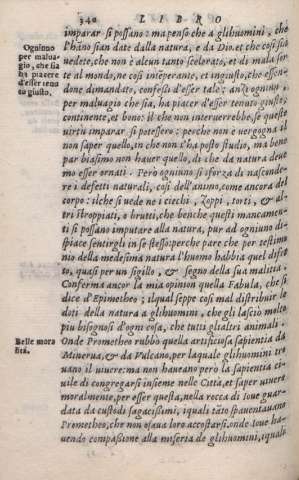 340 LIBRO
imparar si possano: ma penso che a gli huomini, che
l'hãno sian date dalla natura, e da Dio. et che cosi sia
Ogniuno per malua-
gio, che sia ha piacere d'esser tenu
to giusto.
vedete, che non è alcun tanto scelerato, et di mala sor
te al mondo, ne cosi intẽperante, et ingiusto, che essen-
done dimandato, confessi d'esser tale: anzi ogniun,
per maluagio che sia, ha piacer d'esser tenuto giusto,
continente, et bono: il che non interuerrebbe, se queste
virtù imparar si potessero: perche non è vergogna il
non saper quello, in che non s'ha posto studio, ma bene
par biasimo non hauer quello, di che da natura deue
mo esser ornati. Però ogniuno si sforza di nasconde-
re i defetti naturali, cosi dell'animo, come ancora del
corpo: ilche si uede ne i ciechi, Zoppi, torti, & al-
tri stroppiati, o brutti, che benche questi mancamen-
ti si possano imputare alla natura, pur ad ogniuno di-
spiace sentirgli in se stesso: perche pare che per testimo
nio della medesima natura l'huomo habbia quel difet
to, quasi per un sigillo, & segno della sua malitia.
Conferma ancor la mia opinion quella Fabula, che si
dice d'Epimetheo; ilqual seppe cosi mal distribuir le
doti della natura a gli huomini, che gli lasciò molto
piu bisognosi d'ogni cosa, che tutti gli altri animali.
Belle mora
lità.
Onde Prometheo rubbò quella artificiosa sapientia da
Minerua, & da Vulcano, per laquale gli huomini tro
uano il uiuere: ma non haueano però la sapientia ci-
uile di congregarsi insieme nelle Città, et saper viuere
moralmente, per esser questa, nella rocca di Ioue guar-
data da custodi sagacissimi, iquali tãto spauentauano
Prometheo, che non osaua loro accostarsi. onde Ioue ha
uendo compassione alla miseria de gli huomini, iquali